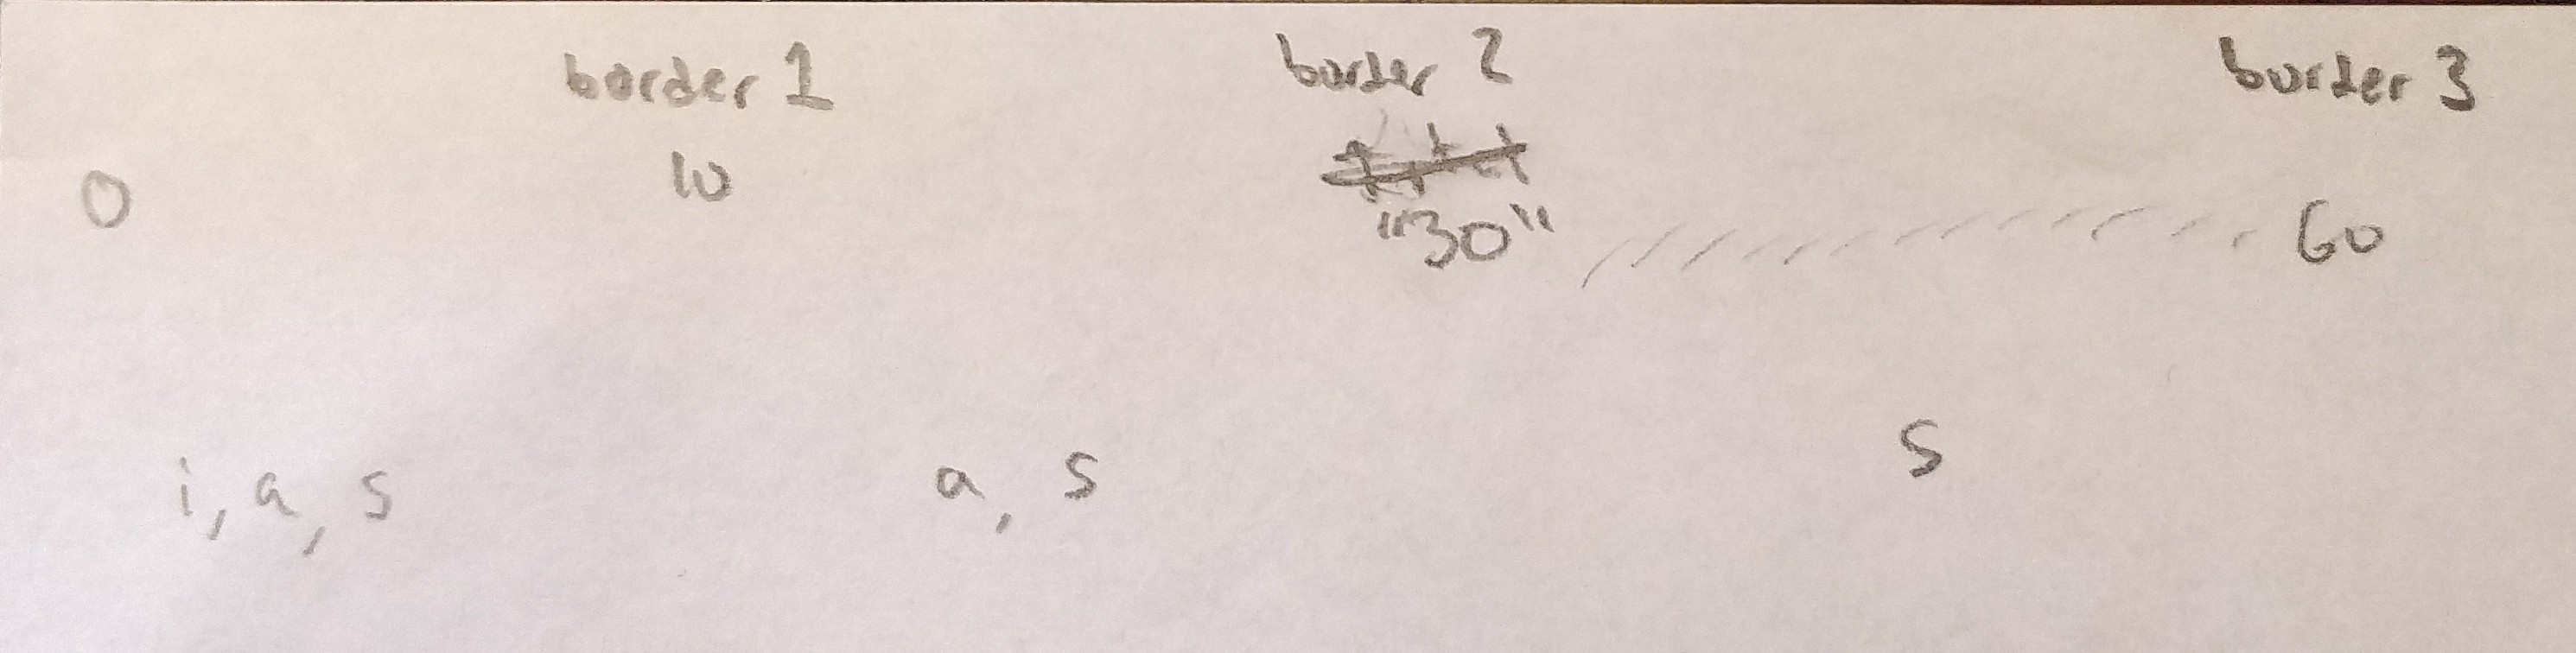 border 1 border 2 border 3
0 10 "30" 60
i, a, s a, s s